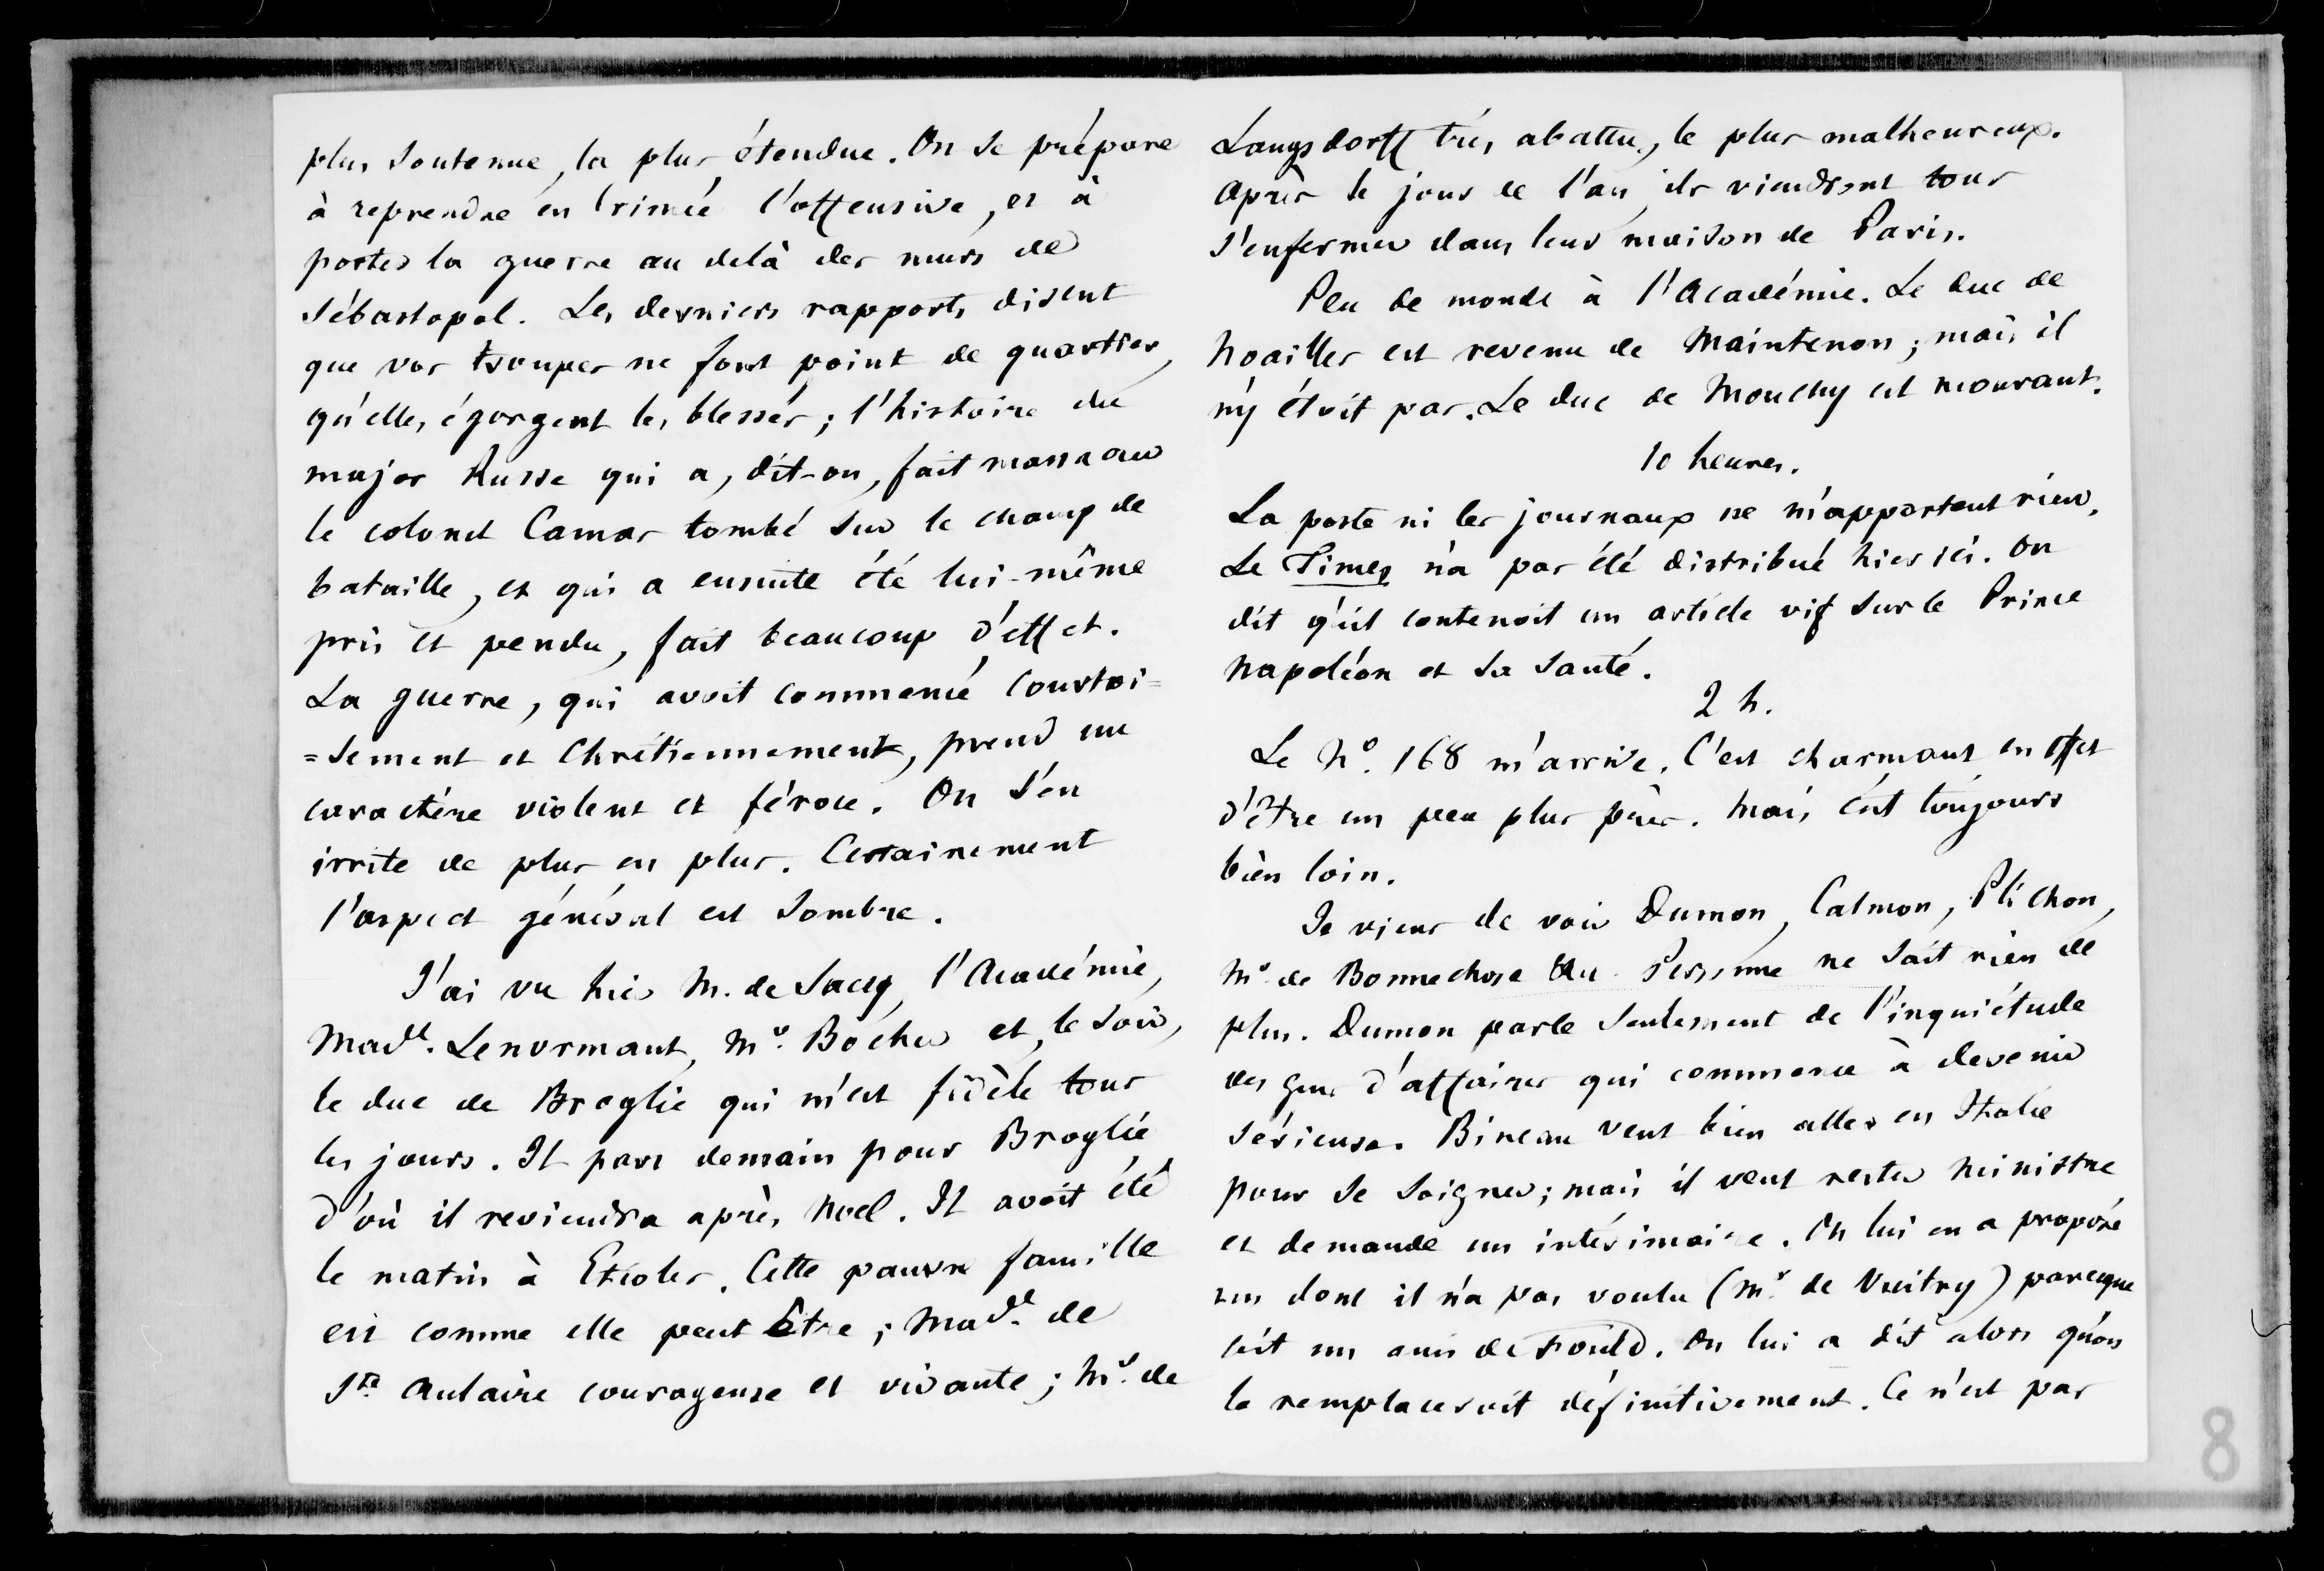 plus soutenue, la plus étendue. On se prépare
à reprendre en Crimée l'offensive, et à
porter la guerre au delà des murs de
Sébastopol. Les derniers rapports disent
que vos troupes ne font point de quartier,
qu'elles égorgent les blessés ; l'histoire du
major Russe qui a, dit-on, fait massacrer
le colonel Camas tombé sur le champ de
bataille, et qui a ensuite été lui-même
pris et pendu, fait beaucoup d'effet.
La guerre, qui avoit commencé courtoi=
=sement et Chrétiennement, prend un
caractère violent et féroce. On s'en
irrite de plus en plus. Certainement
l'aspect général est sombre.
J'ai vu hier M. de Sacy, l'Académie,
Made. Lenormant, Mr. Bocher et, le soir,
le duc de Broglie qui m'est fidèle tous
les jours. Il part demain pour Broglie
d'où il reviendra après Noel. Il avoit été
le matin à Etioles. Cette pauvre famille
est comme elle peut être ; Made. de
Ste Aulaire courageuse et vivante ; Mr. de
Langsdorff très abattu, le plus malheureux.
Après le jour de l'an ils viendront tous
s'enfermer dans leur maison de Paris.
Peu de monde à l'Académie. Le duc de
Noailles est revenu de Maintenon ; mais il
n'y étoit pas. Le duc de Mouchy est mourant.
10 heures.
La poste ni les journaux ne m'apportent rien.
Le Times n'a pas été distribué hier ici. On
dit qu'il contenoit un article vif sur le Prince
Napoléon et sa santé.
2 h.
Le No. 168 m'arrive. C'est charmant en effet
d'être un peu plus près. Mais c'est toujours
bien loin.
Je viens de voir Dumon, Calmon, Plichon,
Mr de Bonnechose &a. Personne ne sait rien de
plus. Dumon parle seulement de l'inquiétude
des gens d'affaires qui commence à devenir
sérieuse. Bineau veut bien aller en Italie
pour se soigner ; mais il veut rester ministre
et demande un intérimaire. On lui en a proposé
un dont il n'a pas voulu (Mr. de Vuitry) parceque
c'est un ami de Fould. On lui a dit alors qu'on
le remplaceroit définitivement. Ce n'est pas
8